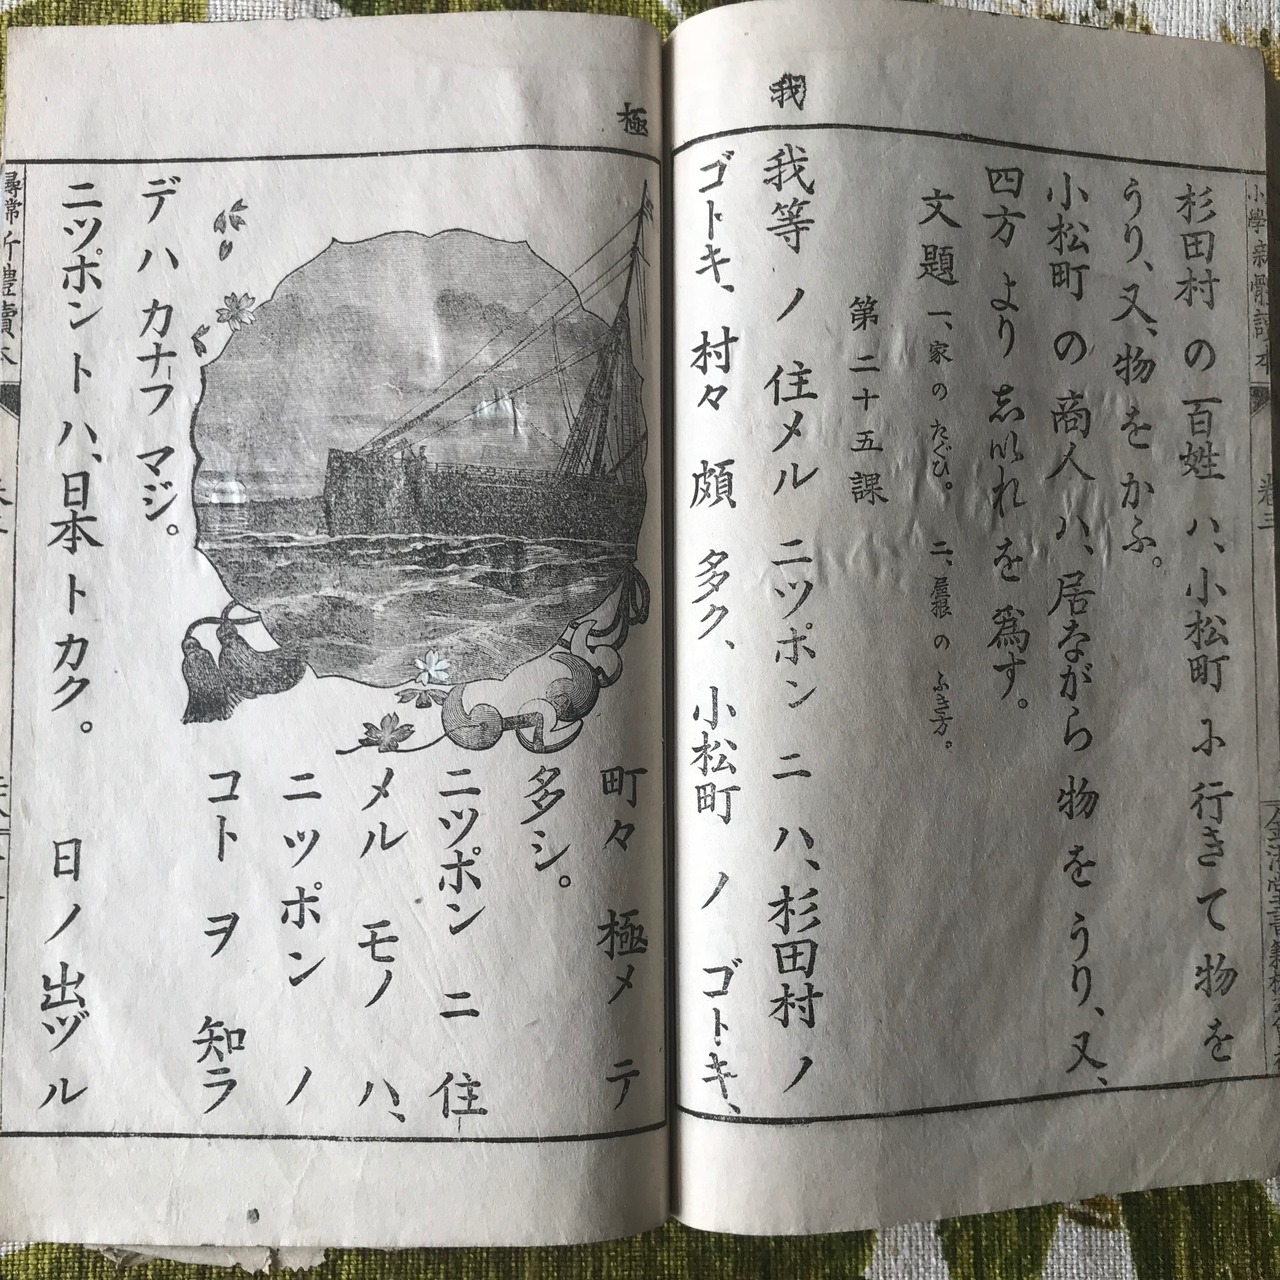 小學新體讀本 卷三
杉田村 の 百姓 ハ、小松町 に 行きて 物 を
うり、又、物 を かふ。
小松町 の 商人 ハ、居ながら 物 を うり、又、
四方 より 志いれ を 爲す。
文題 一、家 の たぐひ。 二、屋根 の ふき方。
第二十五課
我
我等 ノ 住メル ニツポン ニ ハ、杉田村 ノ
ゴトキ、村々 頗 多ク、小松町 ノ ゴトキ、
極
町々 極メテ
多シ。
ニツポン ニ 住
メル モノ ハ、
ニツポン ノ
コト ヲ 知ラ
デハ カナフ マジ。
ニツポント ハ、日本 ト カク。 日 ノ 出ヅル
尋常新體讀本